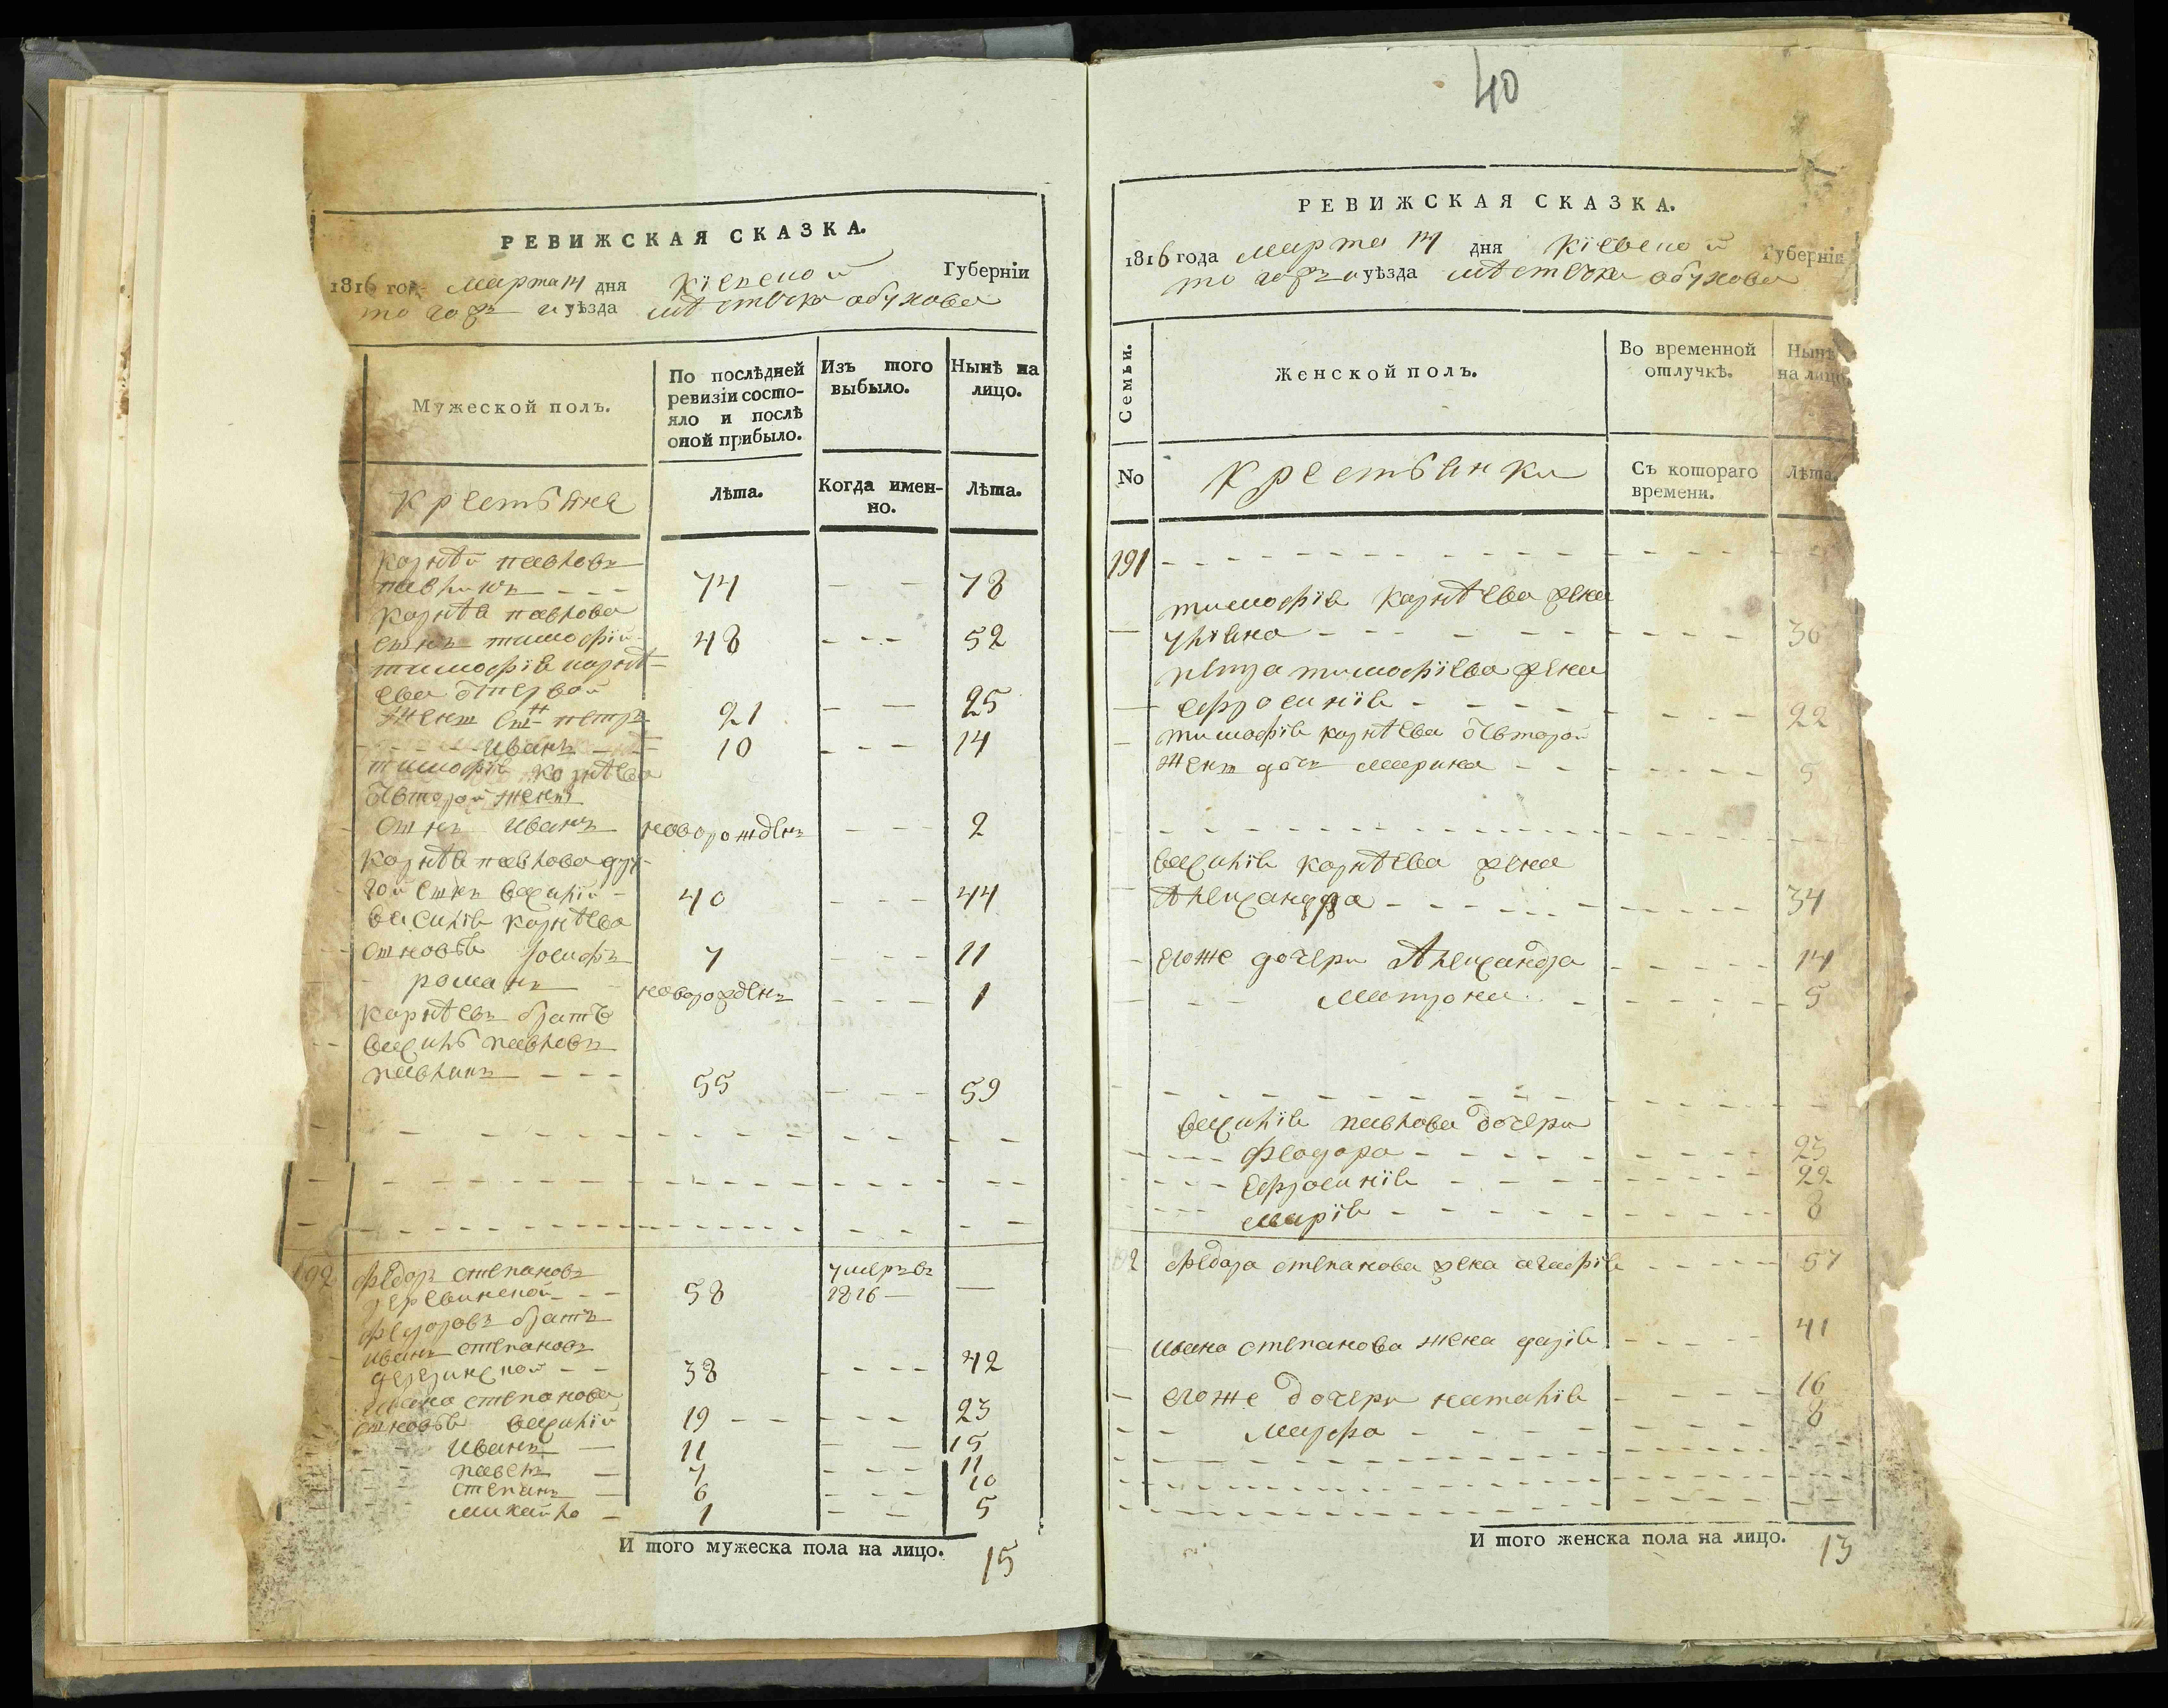 40
РЕВИЖСКАЯ СКАЗКА.
1816 год марта 14 дня Кіевской Губерніи
того жъ и уѣзда мѣстечка обухова
Мужеской полъ.
По послѣдней
ревизіи состо-
яло и послѣ
оной прибыло.
Изъ того
выбыло.
Нынѣ на
лицо.
крестьяне
лѣта.
Когда имен-
но.
лѣта.
корнѣй павловъ
74 78
корнѣя павлова
сынъ тимофій 48 52
тимофія корнѣ-
ева отпервой
женты сынъ петръ 21 25
иванъ 10 14
тимофія корнѣева
отвторой жены
сынъ иванъ новорожденъ 2
корнѣя павлова дру-
гой сынъ василій 40 44
василія корнѣева
сыновья іосифъ 7 11
романъ новорожденъ 1
корнѣевъ братъ
василь павловъ
55 59
192 федоръ степановъ умеръ въ
58 1816
федоровъ братъ
иванъ степановъ
38 42
ивана степанова
сыновья василій 19 23
иванъ 11 15
павелъ 7 11
степанъ 6 10
михайло 1 5
И того мужеска пола на лицо. 15
РЕВИЖСКАЯ СКАЗКА.
1816 года марта 14 дня Кіевской Губерніи
того жъ и уѣзда мѣстечка обухова
Семьи.
Женской полъ.
Во временной
отлучкѣ.
Нынѣ
на лицо
No
крестьянки
Съ котораго
времени.
Лѣта.
191
тимофія корнѣева жена
уліяна 36
петра тимофіева жена
ефросинія 22
тимофія корнѣева отвторой
жены дочь марина 5
василія корнѣева жена
Александра 34
егоже дочери Александра 14
матрона 5
василія павлова дочери
феодора 23
ефросинія 22
марія 8
92 федора степанова жена агафія 57
ивана степанова жена дарія 41
егоже дочери наталія 16
марфа 8
И того женска пола на лицо. 13